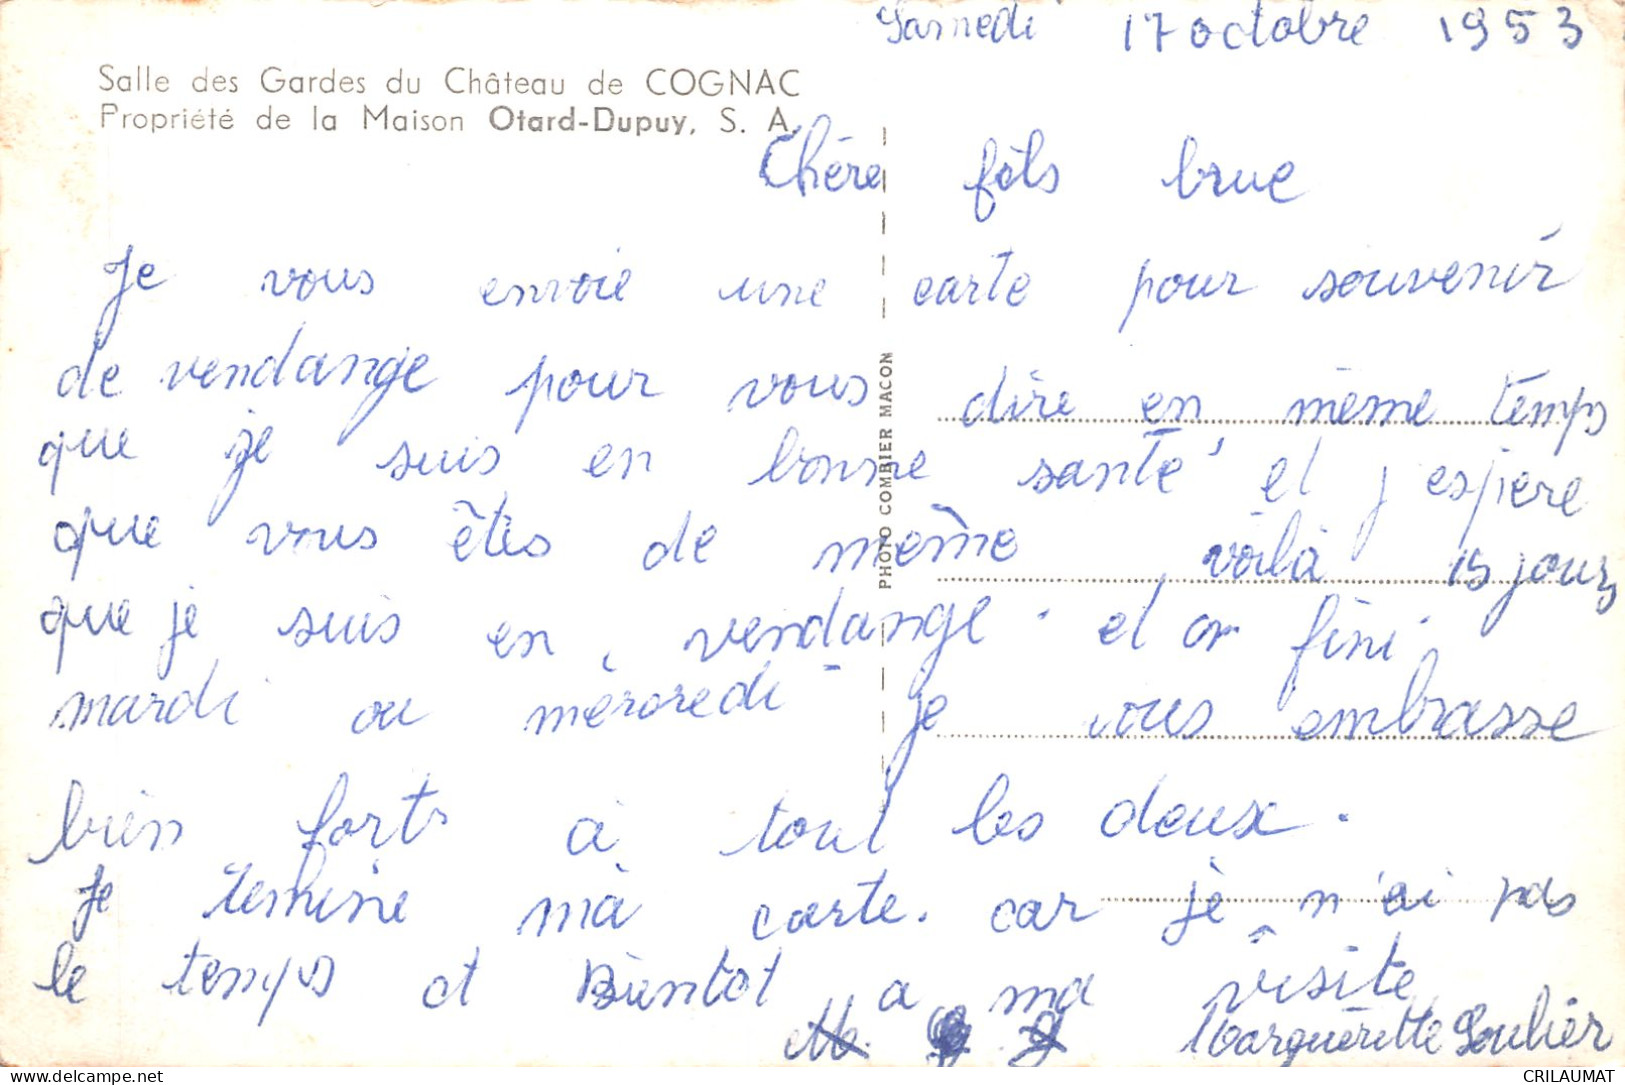 Samedi 17 octobre 1953
Salle des Gardes du Château de COGNAC
Propriété de la Maison Otard-Dupuy, S. A.
Chère fils brue
Je vous envoie une carte pour souvenir
de vendange pour vous dire en même temps
que je suis en bonne santé et j espère
que vous êtes de même voilà 15 jours
que je suis en vendange. et on fini
mardi ou mércredi je vous embrasse
bien forts a tout les deux.
Je termine ma carte. car je n'ai pas
le temps et Bientot a ma visite
Margueritte Soulier
PHOTO COMBIER MACON
CRILAUMAT